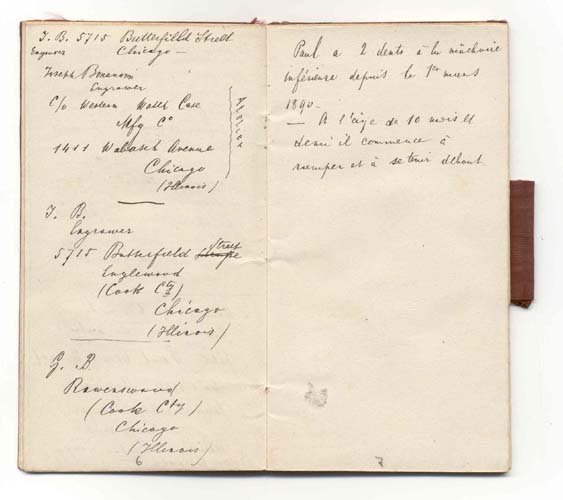 J. B. 5715 Butterfield Street
Engraver Chicago —
Joseph Bonanom
Engrawer
C/o Western Watch Case
Mfg Cº
1411 Wabash Avenue
Chicago
(Illinois)
J. B.
Engrawer
5715 Butterfield Street
Englewood
(Cook Cty)
Chicago
(Illinois)
G. B.
Rawenswood
(Cook Cty)
Chicago
(Illinois)
6
Paul a 2 dents à la mâchoire
inférieure depuis le 1er mars
1890 -
— A l'âge de 10 mois et
demi il commence à
ramper et à se tenir debout
7